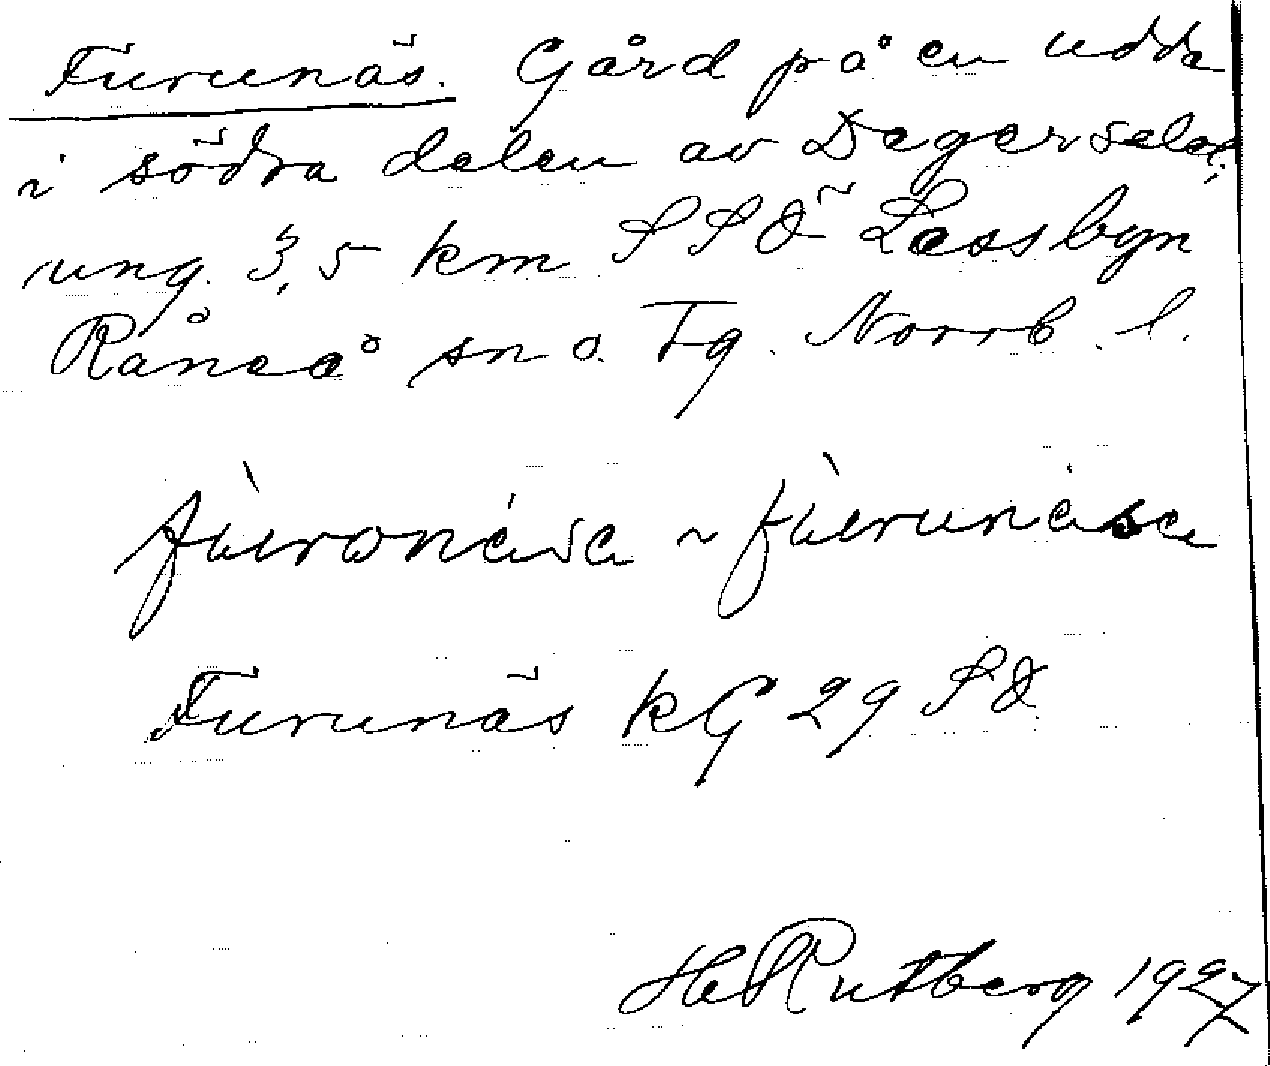 Furunäs. Gård på en udde
i södra delen av Degerselet,
ung. 3,5 km SSÖ Lassbyn
Råneå sn o. Tg. Norrb. l.
fùronása ~ fùrunása
Furunäs kG 29 SÖ
He Rutberg 1927